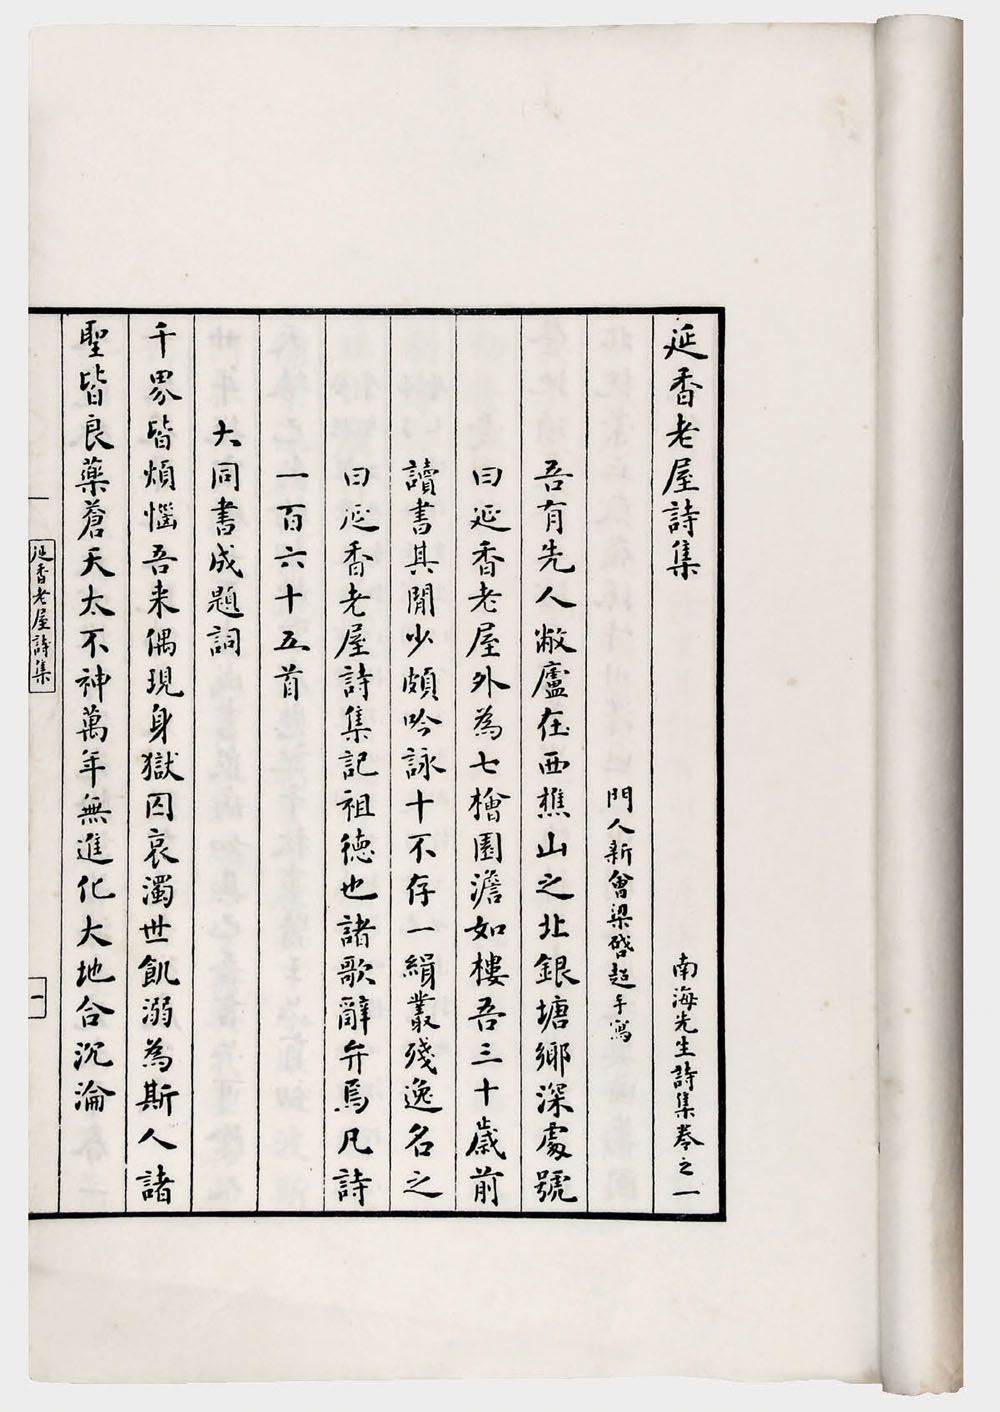 延香老屋詩集　南海先生詩集卷之一
門人新會梁啓超手寫
吾有先人敝廬在西樵山之北銀塘鄉深處號
曰延香老屋外為七檜園澹如樓吾三十歲前
讀書其間少頗吟詠十不存一緝叢殘逸名之
曰延香老屋詩集記祖德也諸歌辭弁焉凡詩
一百六十五首
大同書成題詞
千界皆煩惱吾来偶現身獄囚哀濁世飢溺為斯人諸
聖皆良藥蒼天太不神萬年無進化大地合沉淪
延香老屋詩集
一